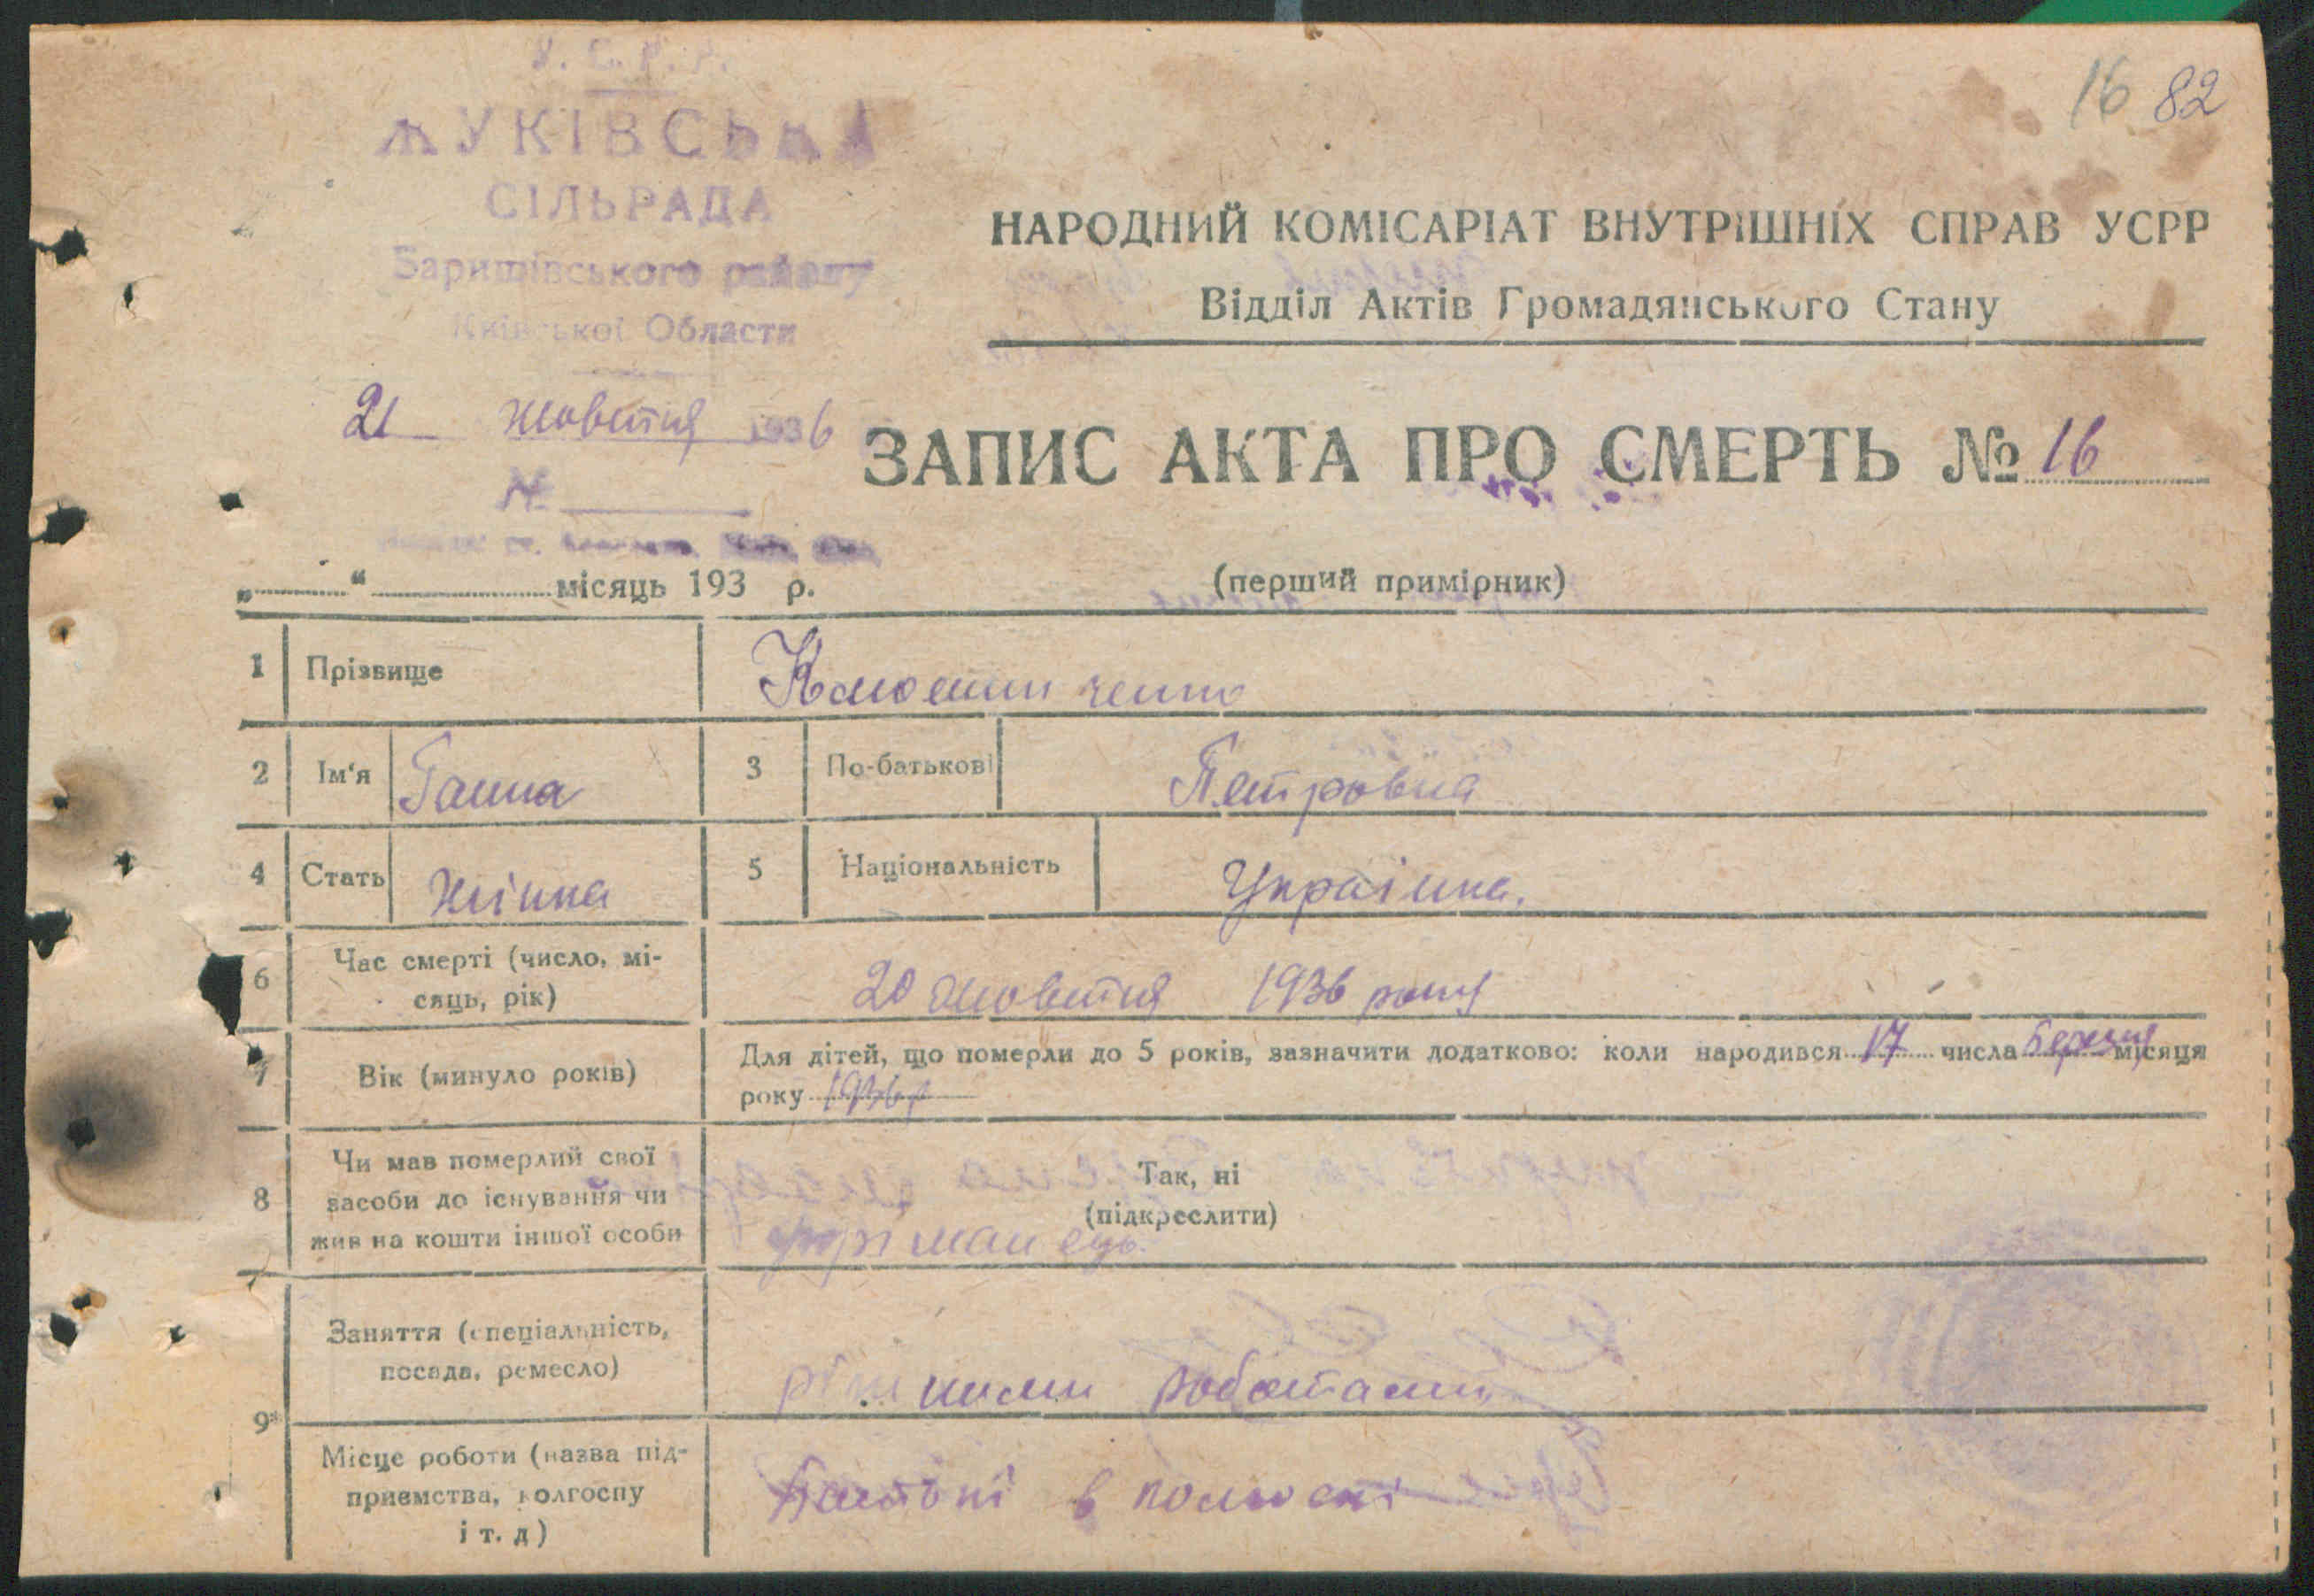 У. С. Р. Р.
16 82
ЖУКІВСЬКА
СІЛЬРАДА
Баришівського району
Київської Области
НАРОДНИЙ КОМІСАРІАТ ВНУТРІШНІХ СПРАВ УСРР
Відділ Актів Громадянського Стану
21 жовтня 1936
ЗАПИС АКТА ПРО СМЕРТЬ № 16
№
„ “ місяць 193 р.
(перший примірник)
1 Прізвище
2 Ім‘я Ганна 3 По-батькові Петровна
4 Стать жінка 5 Національність Українка.
6 Час смерті (число, мі-
сяць, рік) 20 жовтня 1936 року
7 Вік (минуло років) Для дітей, що померли до 5 років, зазначити додатково: коли народився 17 числа березня місяця
року 1936 р
8 Чи мав померлий свої
засоби до існування чи
жив на кошти іншої особи
Так, ні
(підкреслити)
утриманець
9 Заняття (спеціальність,
посада, ремесло) різними роботами
Місце роботи (назва під-
приємства, колгоспу
і т. д) Батькі в